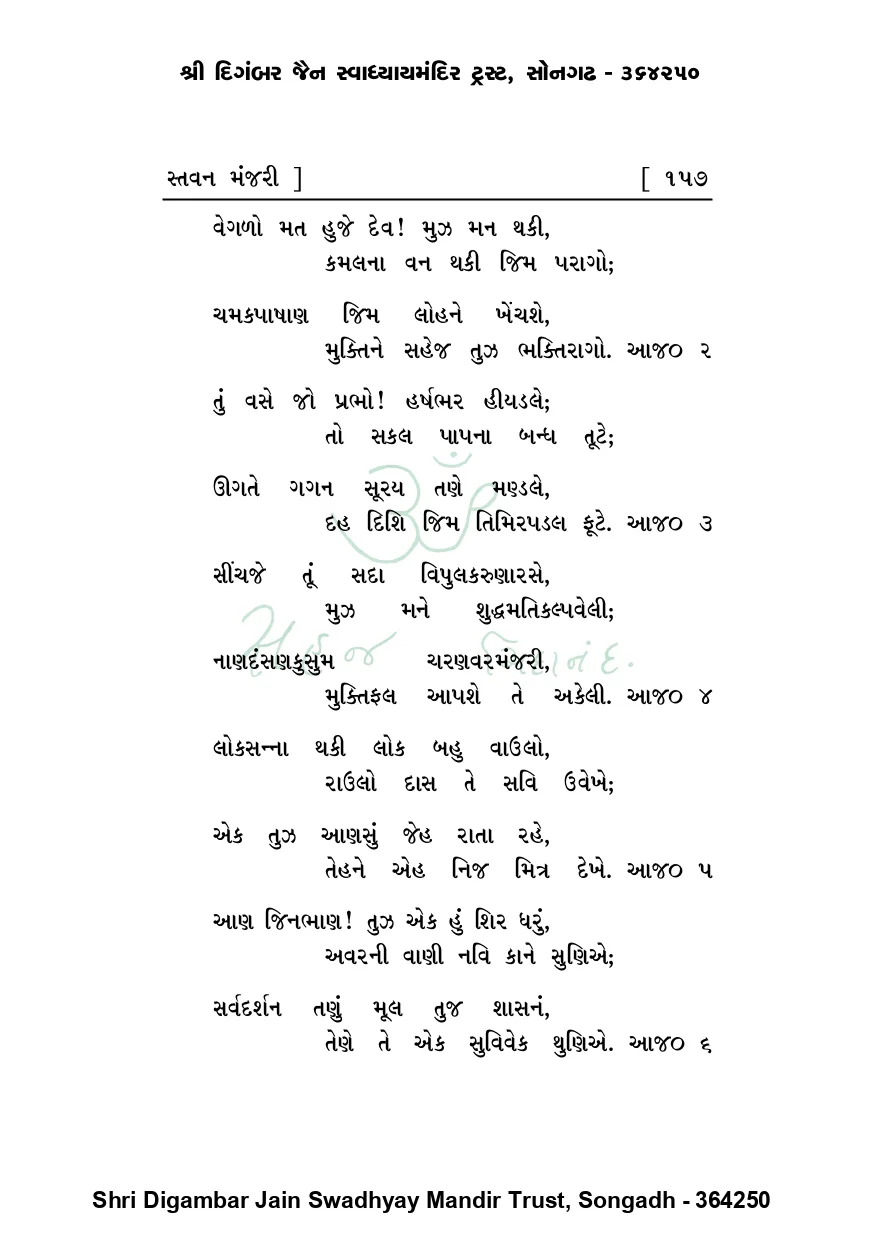 શ્રી દિગંબર જૈન સ્વાધ્યાયમંદિર ટ્રસ્ટ, સોનગઢ - ૩૬૪૨૫૦
સ્તવન મંજરી ] [ ૧૫૭
વેગળો મત હુજે દેવ! મુઝ મન થકી,
કમલના વન થકી જિમ પરાગો;
ચમકપાષાણ જિમ લોહને ખેંચશે,
મુક્તિને સહેજ તુઝ ભક્તિરાગો. આજ૦ ૨
તું વસે જો પ્રભો! હર્ષભર હીયડલે;
તો સકલ પાપના બન્ધ તૂટે;
ઊગતે ગગન સૂરય તણે મણ્ડલે,
દહ દિશિ જિમ તિમિરપડલ ફૂટે. આજ૦ ૩
સીંચજે તૂં સદા વિપુલકરુણારસે,
મુઝ મને શુદ્ધમતિકલ્પવેલી;
નાણદંસણકુસુમ ચરણવરમંજરી,
મુક્તિફલ આપશે તે અકેલી. આજ૦ ૪
લોકસન્ના થકી લોક બહુ વાઉલો,
રાઉલો દાસ તે સવિ ઉવેખે;
એક તુઝ આણસું જેહ રાતા રહે,
તેહને એહ નિજ મિત્ર દેખે. આજ૦ ૫
આણ જિનભાણ! તુઝ એક હું શિર ધરું,
અવરની વાણી નવિ કાને સુણિએ;
સર્વદર્શન તણું મૂલ તુજ શાસનં,
તેણે તે એક સુવિવેક થુણિએ. આજ૦ ૬
ૐ
સહજ ચિદાનંદ.
Shri Digambar Jain Swadhyay Mandir Trust, Songadh - 364250